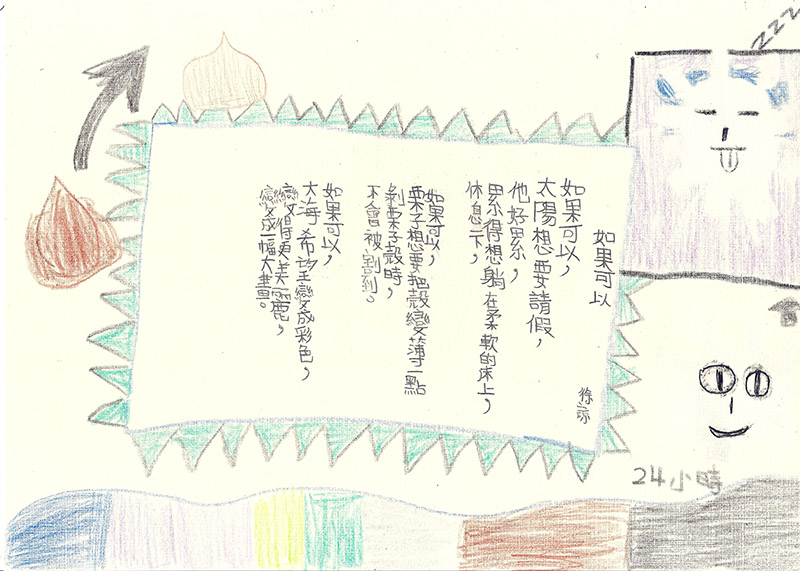 如果可以
徐詠
如果可以，
太陽想要請假，
他好累，
累得想躺在柔軟的床上，
休息一下，
如果可以，
栗子想要把殼變薄一點
剝栗子殼時，
不會被割到。
如果可以，
大海希望變成彩色，
變得更美麗，
變成一幅大畫。
zzz
24小時